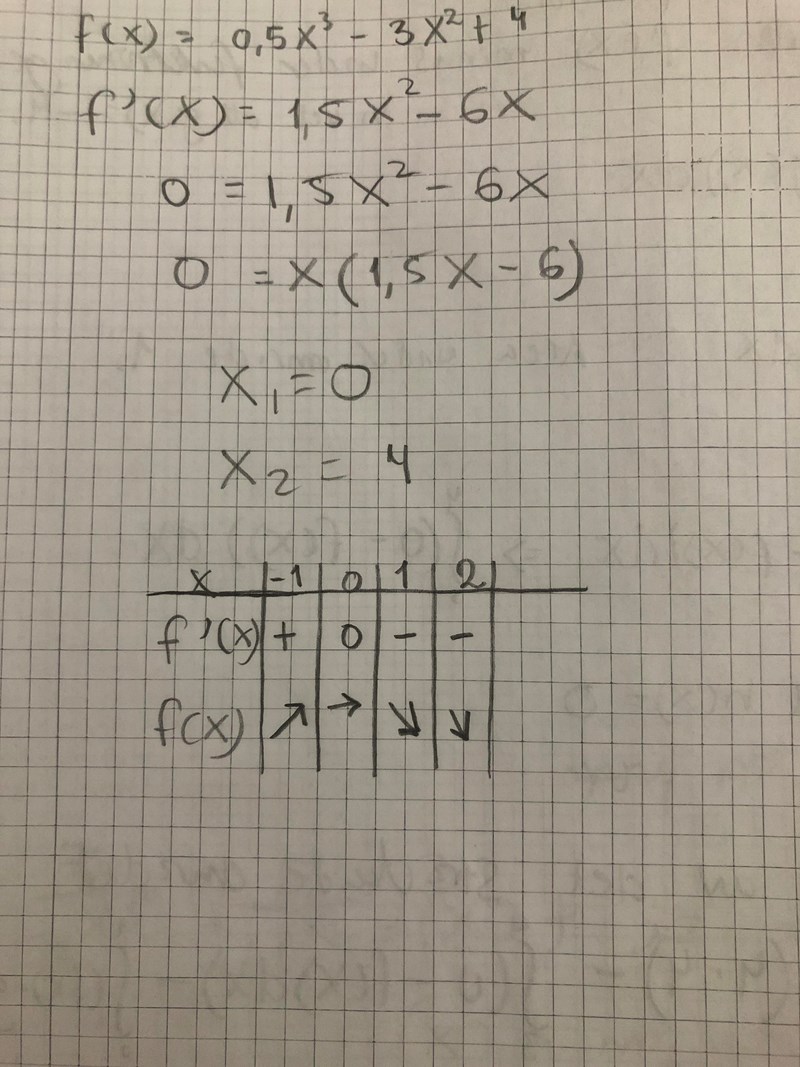 f(x) = 0,5x³ - 3x² + 4
f'(x) = 1,5x² - 6x
0 = 1,5x² - 6x
0 = x(1,5x - 6)
x₁ = 0
x₂ = 4
x | -1 | 0 | 1 | 2 |
f'(x) | + | 0 | - | - |
f(x) | ↗ | → | ↘ | ↘ |